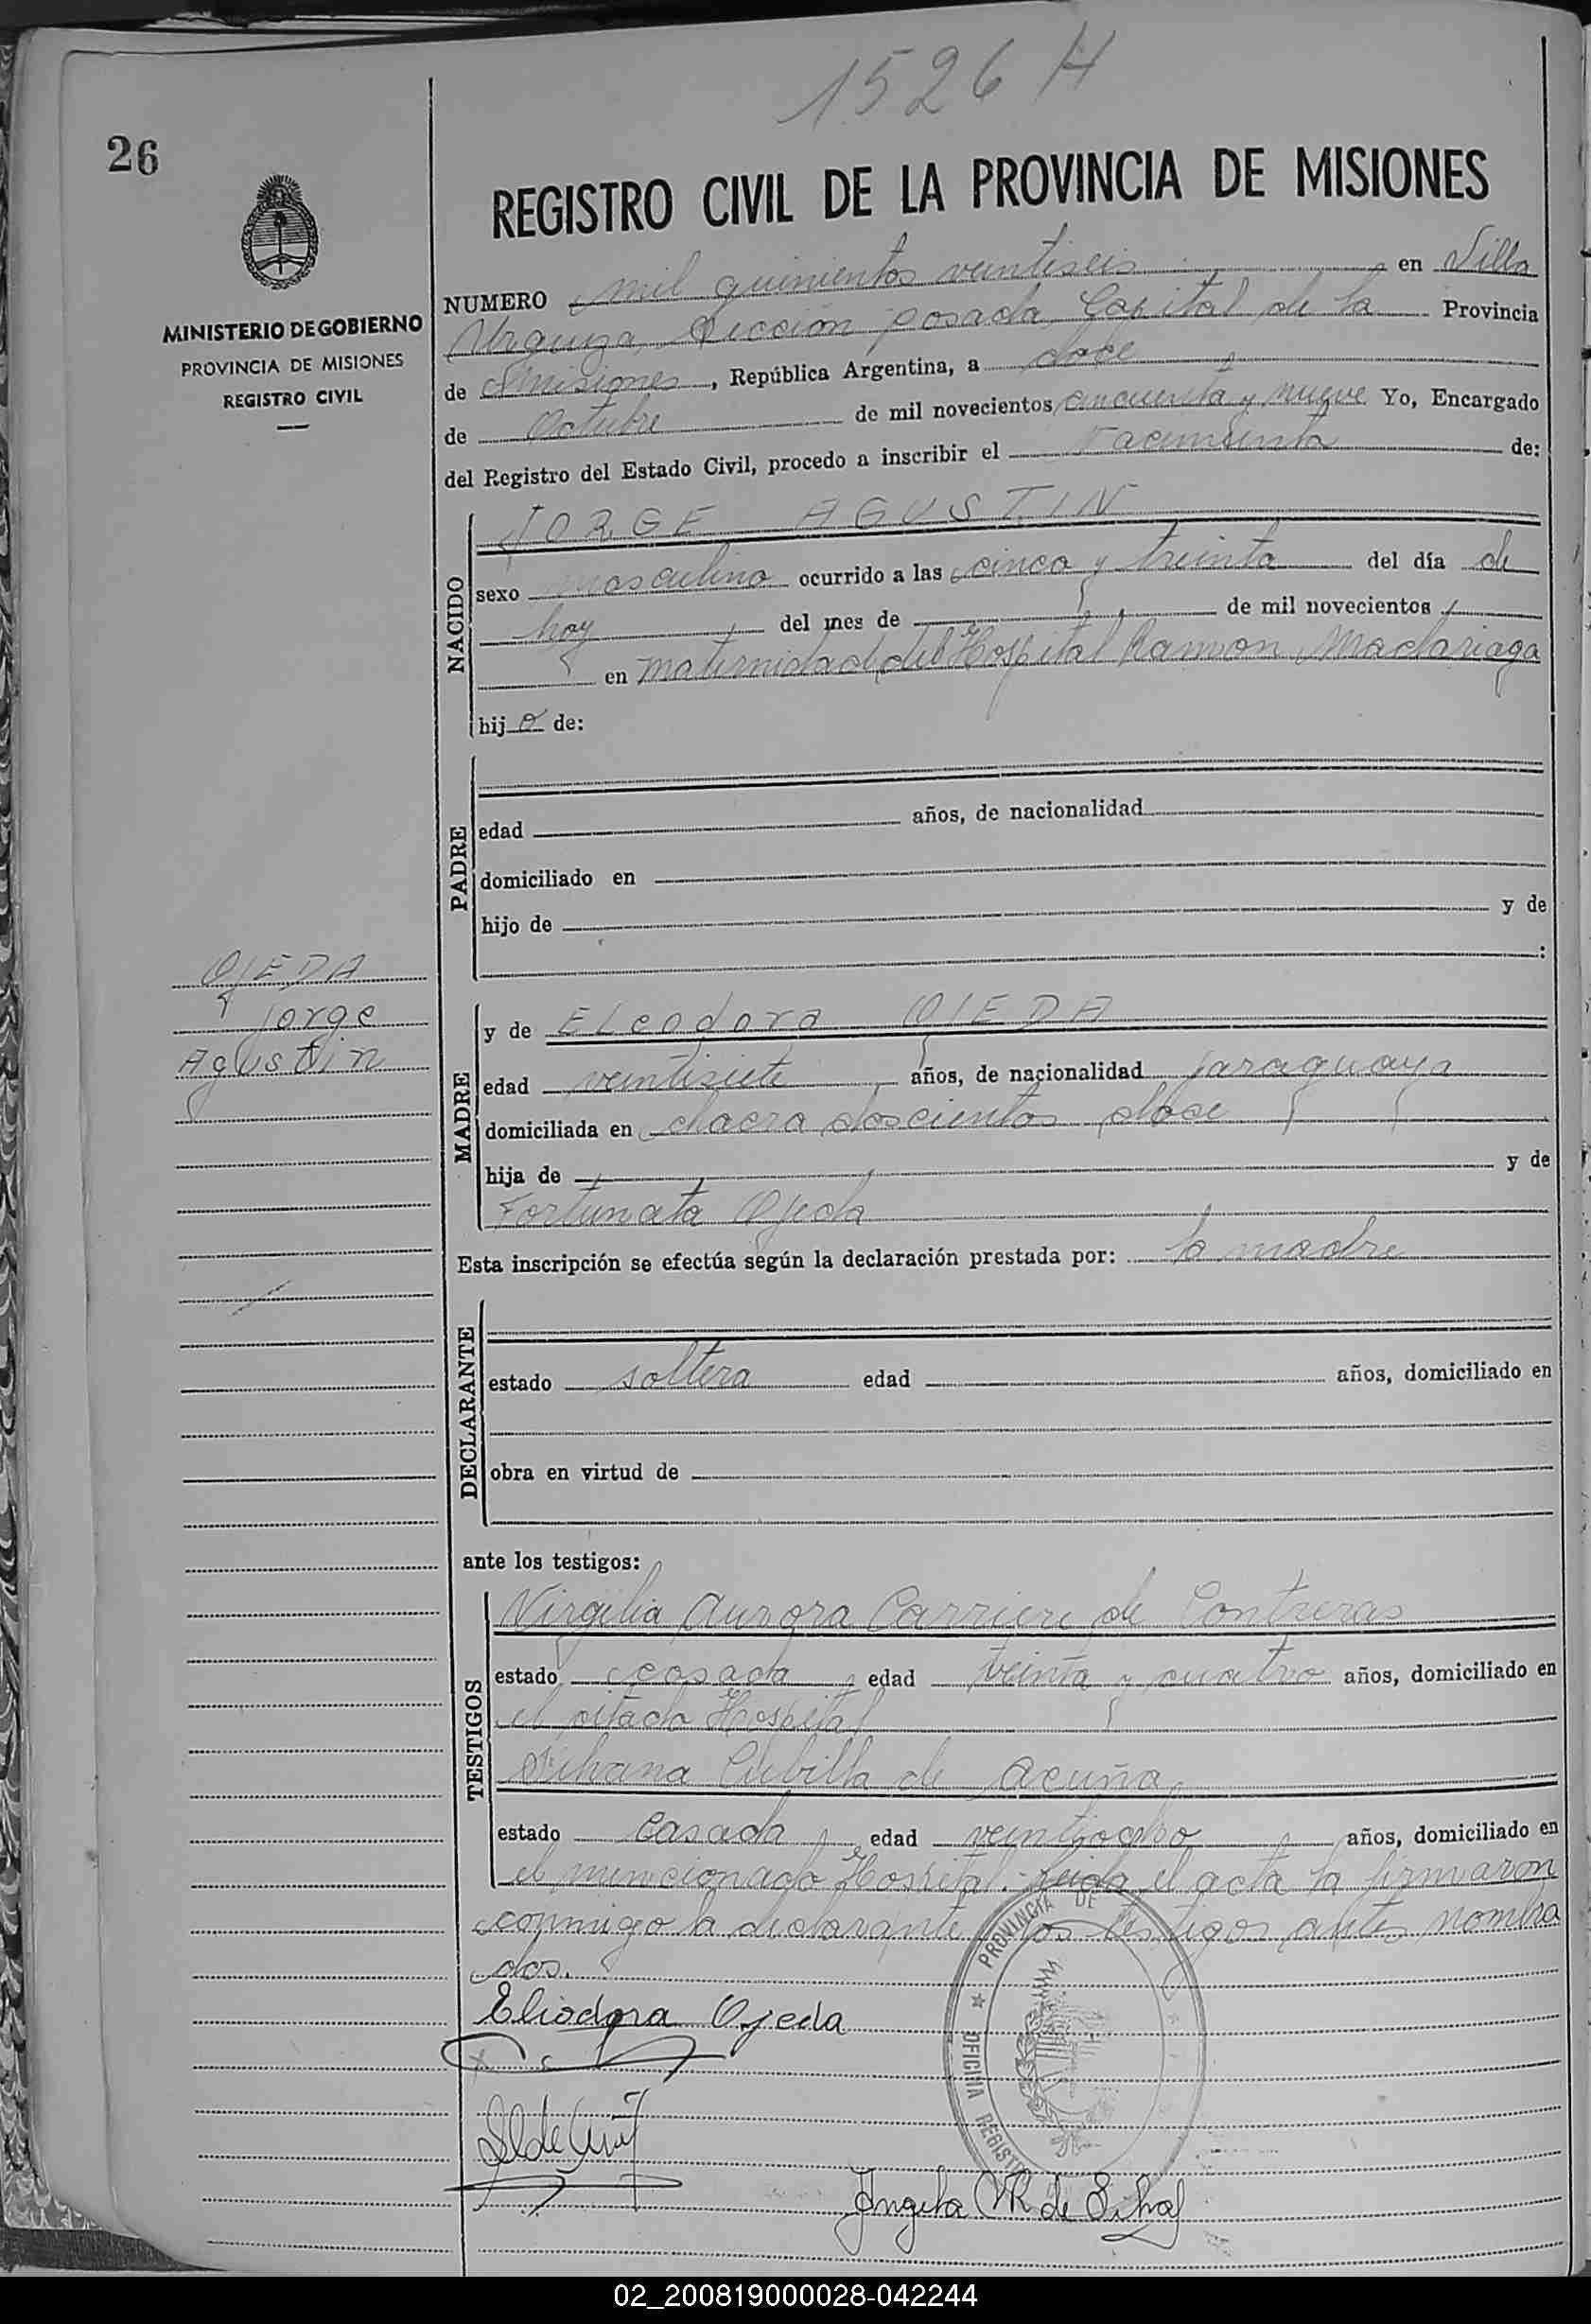 1526 H
26
REGISTRO CIVIL DE LA PROVINCIA DE MISIONES
MINISTERIO DE GOBIERNO
PROVINCIA DE MISIONES
REGISTRO CIVIL
NUMERO mil quinientos veintiseis en Villa
Urquiza, Sección posada, Capital de la Provincia
de Misiones, República Argentina, a doce
de Octubre de mil novecientos cincuenta y nueve Yo, Encargado
del Registro del Estado Civil, procedo a inscribir el nacimiento de:
NACIDO
JORGE AGUSTIN
sexo masculino ocurrido a las cinco y treinta del día de
hoy del mes de de mil novecientos
en maternidad del Hospital Ramon Madariaga
hijo de:
PADRE
edad años, de nacionalidad
domiciliado en
hijo de y de
:
OJEDA
Jorge
Agustin
MADRE
y de ELeodora OJEDA
edad veintisiete años, de nacionalidad paraguaya
domiciliada en chacra doscientos doce
hija de y de
Fortunata Ojeda
Esta inscripción se efectúa según la declaración prestada por: la madre
DECLARANTE
estado soltera edad años, domiciliado en
obra en virtud de
ante los testigos:
TESTIGOS
Virgilia Aurora Carriere de Contreras
estado casada edad treinta y cuatro años, domiciliado en
el citado Hospital
Silvana Cubilla de Acuña
estado Casada edad veintiocho años, domiciliado en
el mencionado Hospital. Leida el acta la firmaron
conmigo la declarante y los testigos antes nombra
dos.
PROVINCIA DE
OFICINA REGIST
Eliodora Ojeda
Angela R de Silva
02_200819000028-042244